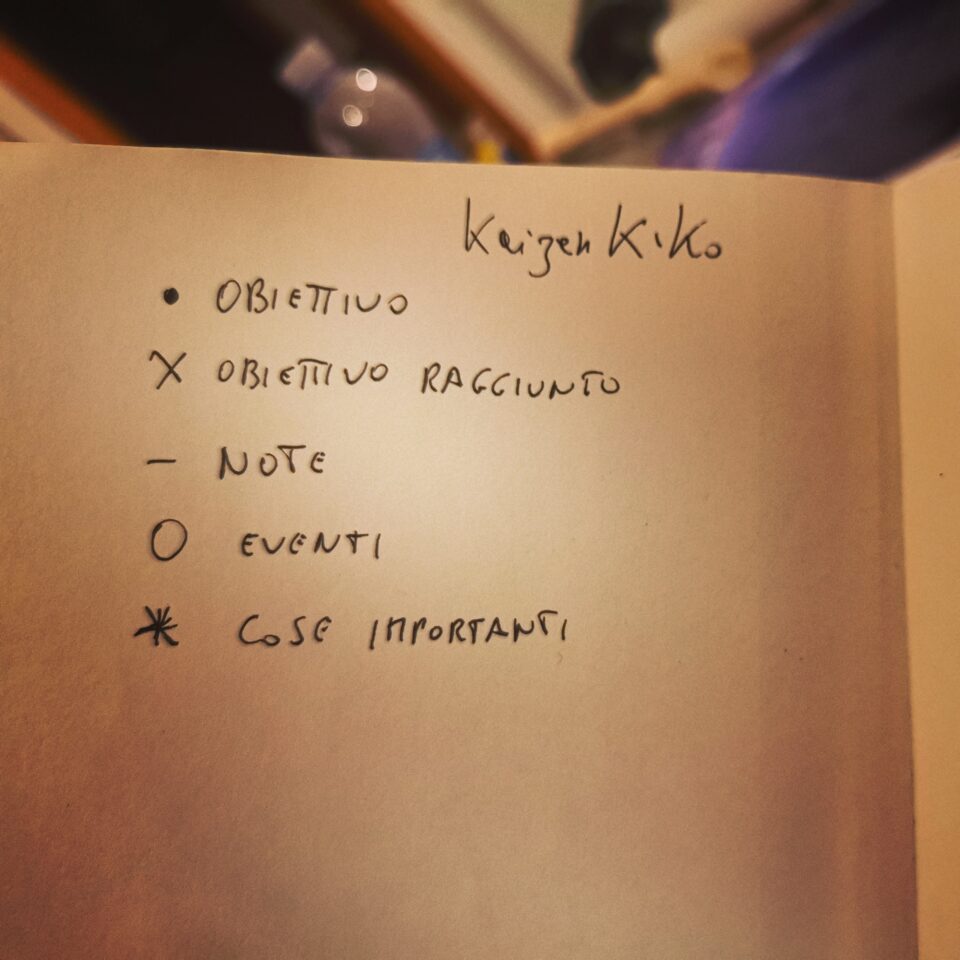 Kaizen Kiko
• OBIETTIVO
X OBIETTIVO RAGGIUNTO
– NOTE
O EVENTI
* COSE IMPORTANTI